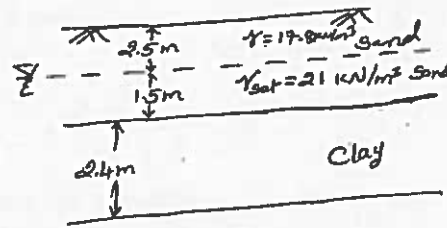 2.5m γ = 17.8 kN/m³ Sand
1.5m γsat = 21 KN/m³ Sand
2.4m Clay